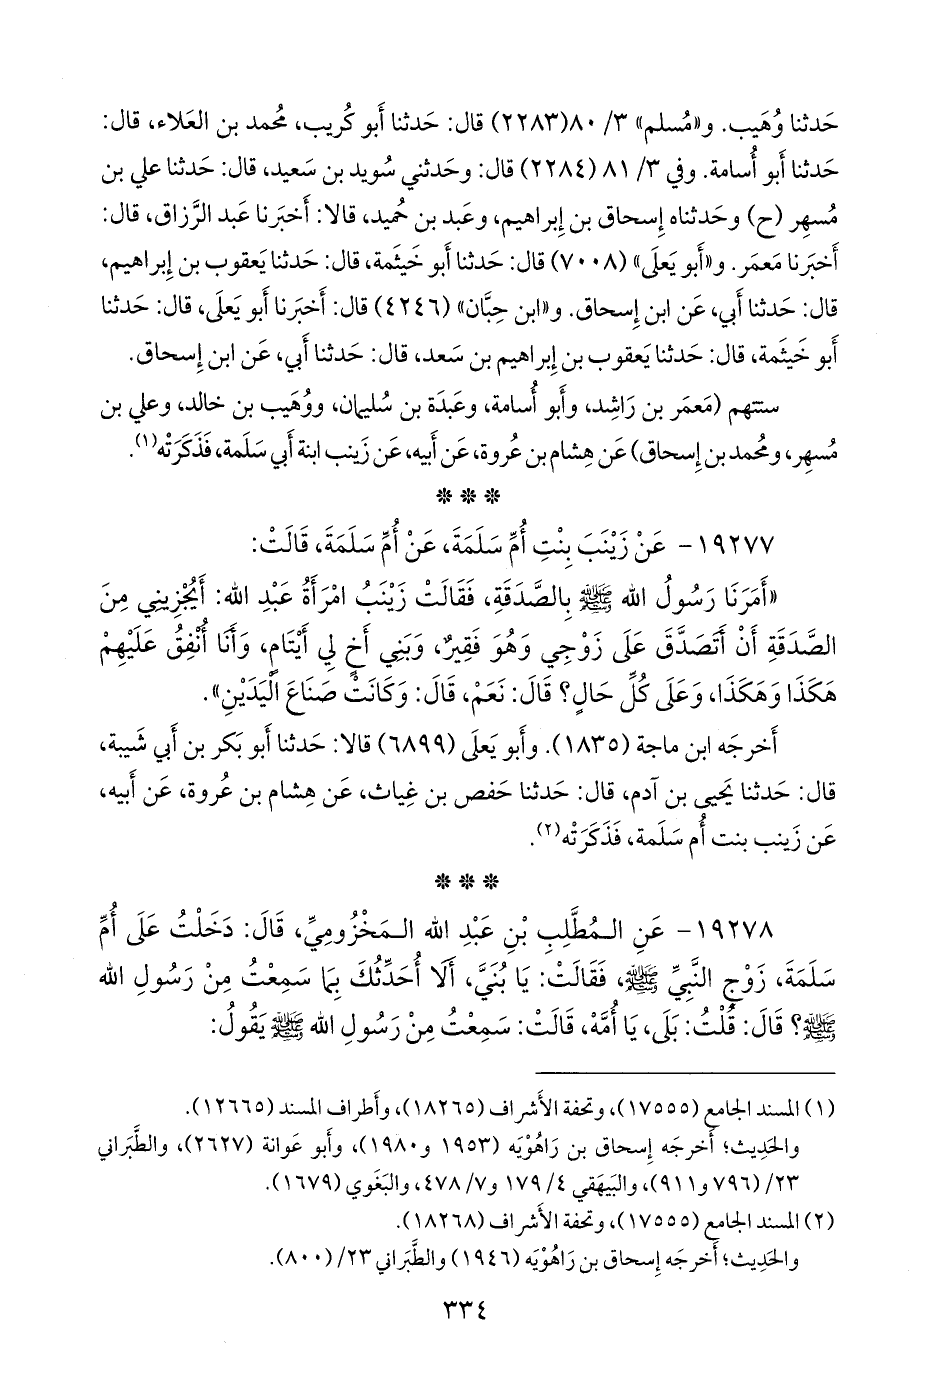 حَدثنا وُهَيب. و«مُسلم» ٣/ ٨٠(٢٢٨٣) قال: حَدثنا أَبو كُريب، مُحمد بن العَلاء، قال:
حَدثنا أَبو أُسامة. وفي ٣/ ٨١ (٢٢٨٤) قال: وحَدثني سُويد بن سَعيد، قال: حَدثنا علي بن
مُسهِر (ح) وحَدثناه إِسحاق بن إِبراهيم، وعَبد بن حُميد، قالا: أَخبَرنا عَبد الرَّزاق، قال:
أَخبَرنا مَعمَر. و«أَبو يَعلَى» (٧٠٠٨) قال: حَدثنا أَبو خَيثَمة، قال: حَدثنا يَعقوب بن إِبراهيم،
قال: حَدثنا أَبي، عَن ابن إِسحاق. و«ابن حِبَّان» (٤٢٤٦) قال: أَخبَرنا أَبو يَعلَى، قال: حَدثنا
أَبو خَيثَمة، قال: حَدثنا يَعقوب بن إِبراهيم بن سَعد، قال: حَدثنا أَبي، عَن ابن إِسحاق.
ستتهم (مَعمَر بن رَاشِد، وأَبو أُسامة، وعَبدَة بن سُليمان، ووُهَيب بن خالد، وعلي بن
مُسهِر، ومُحمد بن إِسحاق) عَن هِشام بن عُروة، عَن أَبيه، عَن زَينب ابنة أَبي سَلَمة، فَذَكَرَتْه(١).
* * *
١٩٢٧٧- عَنْ زَيْنَبَ بِنْتِ أُمِّ سَلَمَةَ، عَنْ أُمِّ سَلَمَةَ، قَالَتْ:
«أَمَرَنَا رَسُولُ الله ﷺ بِالصَّدَقَةِ، فَقَالَتْ زَيْنَبُ امْرَأَةُ عَبْدِ الله: أَيُجْزِينِي مِنَ
الصَّدَقَةِ أَنْ أَتَصَدَّقَ عَلَى زَوْجِي وَهُوَ فَقِيرٌ، وَبَنِي أَخٍ لِي أَيْتَامٍ، وَأَنَا أُنْفِقُ عَلَيْهِمْ
هَكَذَا وَهَكَذَا، وَعَلَى كُلِّ حَالٍ؟ قَالَ: نَعَمْ، قَالَ: وَكَانَتْ صَنَاعَ الْيَدَيْنِ».
أَخرجَه ابن ماجة (١٨٣٥). وأَبو يَعلَى (٦٨٩٩) قالا: حَدثنا أَبو بَكر بن أَبي شَيبة،
قال: حَدثنا يَحيى بن آدم، قال: حَدثنا حَفص بن غِياث، عَن هِشام بن عُروة، عَن أَبيه،
عَن زَينب بنت أُم سَلَمة، فَذَكَرَتْه(٢).
* * *
١٩٢٧٨- عَنِ الـمُطَّلِبِ بْنِ عَبْدِ الله الـمَخْزُومِيِّ، قَالَ: دَخَلْتُ عَلَى أُمِّ
سَلَمَةَ، زَوْجِ النَّبِيِّ ﷺ، فَقَالَتْ: يَا بُنَيَّ، أَلَا أُحَدِّثُكَ بِمَا سَمِعْتُ مِنْ رَسُولِ الله
ﷺ؟ قَالَ: قُلْتُ: بَلَى، يَا أُمَّهْ، قَالَتْ: سَمِعْتُ مِنْ رَسُولِ الله ﷺ يَقُولُ:
(١) المسند الجامع (١٧٥٥٥)، وتحفة الأَشراف (١٨٢٦٥)، وأَطراف المسند (١٢٦٦٥).
والحَدِيث؛ أَخرجَه إِسحاق بن رَاهُوْيَه (١٩٥٣ و١٩٨٠)، وأَبو عَوانة (٢٦٢٧)، والطَّبَراني
٢٣/ (٧٩٦ و٩١١)، والبَيهَقي ٤/ ١٧٩ و٧/ ٤٧٨، والبَغَوي (١٦٧٩).
(٢) المسند الجامع (١٧٥٥٥)، وتحفة الأَشراف (١٨٢٦٨).
والحَدِيث؛ أَخرجَه إِسحاق بن رَاهُوْيَه (١٩٤٦) والطَّبَراني ٢٣/ (٨٠٠).
٣٣٤